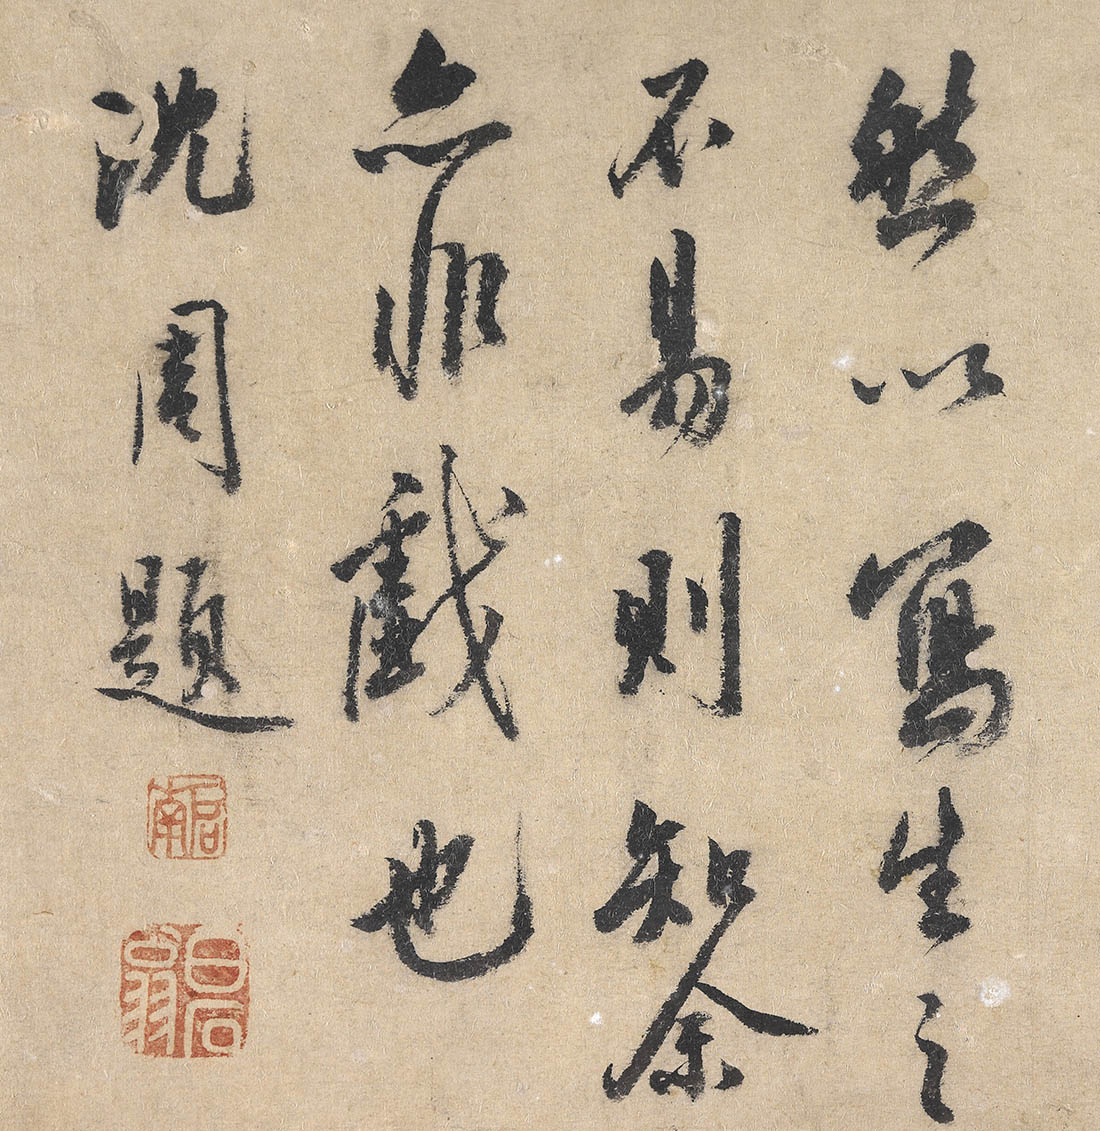 然以寫生之
不易則知余
亦非戲也
沈周題
啟南
白石翁